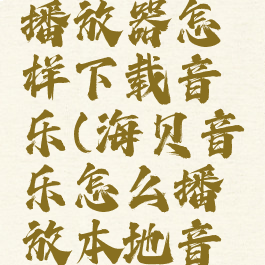 播放器怎
样下载音
乐(海贝音
乐怎么播
放本地音